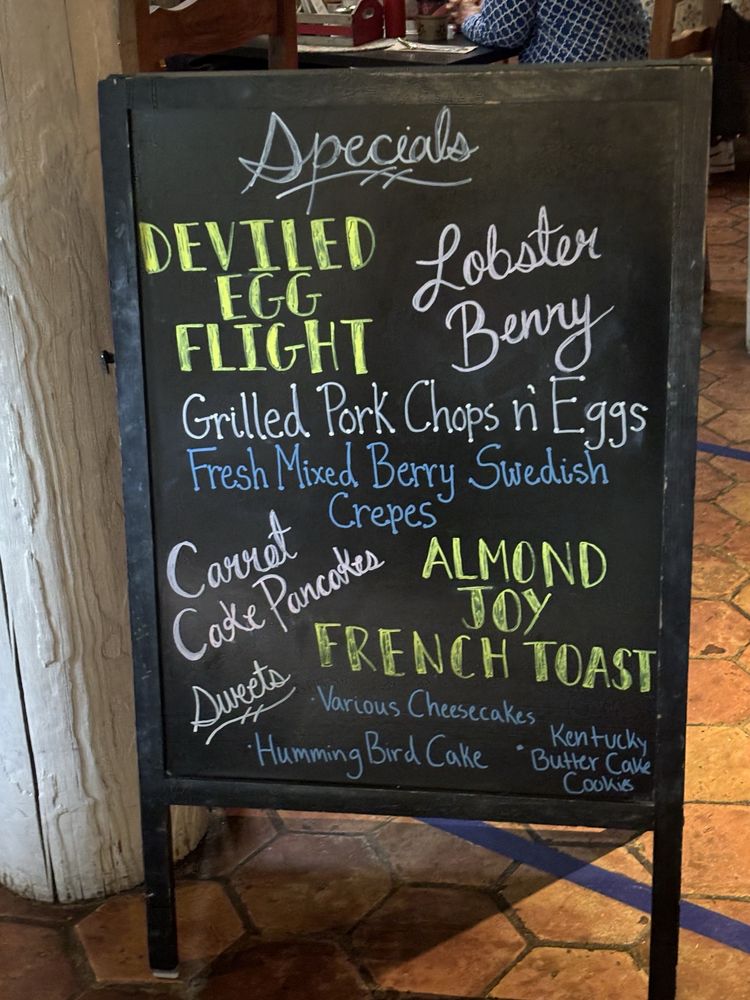 Specials
DEVILED
EGG
FLIGHT
Lobster
Benny
Grilled Pork Chops n' Eggs
Fresh Mixed Berry Swedish
Crepes
Carrot
Cake Pancakes
ALMOND
JOY
FRENCH TOAST
Sweets
· Various Cheesecakes
· Humming Bird Cake
· Kentucky
Butter Cake
Cookies